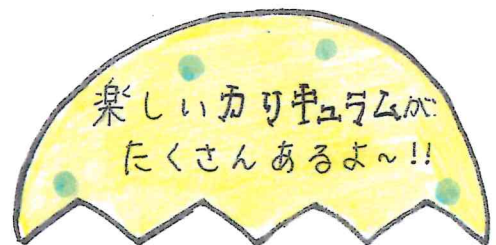 楽しいカリキュラムが
たくさんあるよ～!!